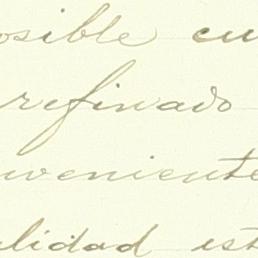 osible cu
refinado
nveniente
alidad est